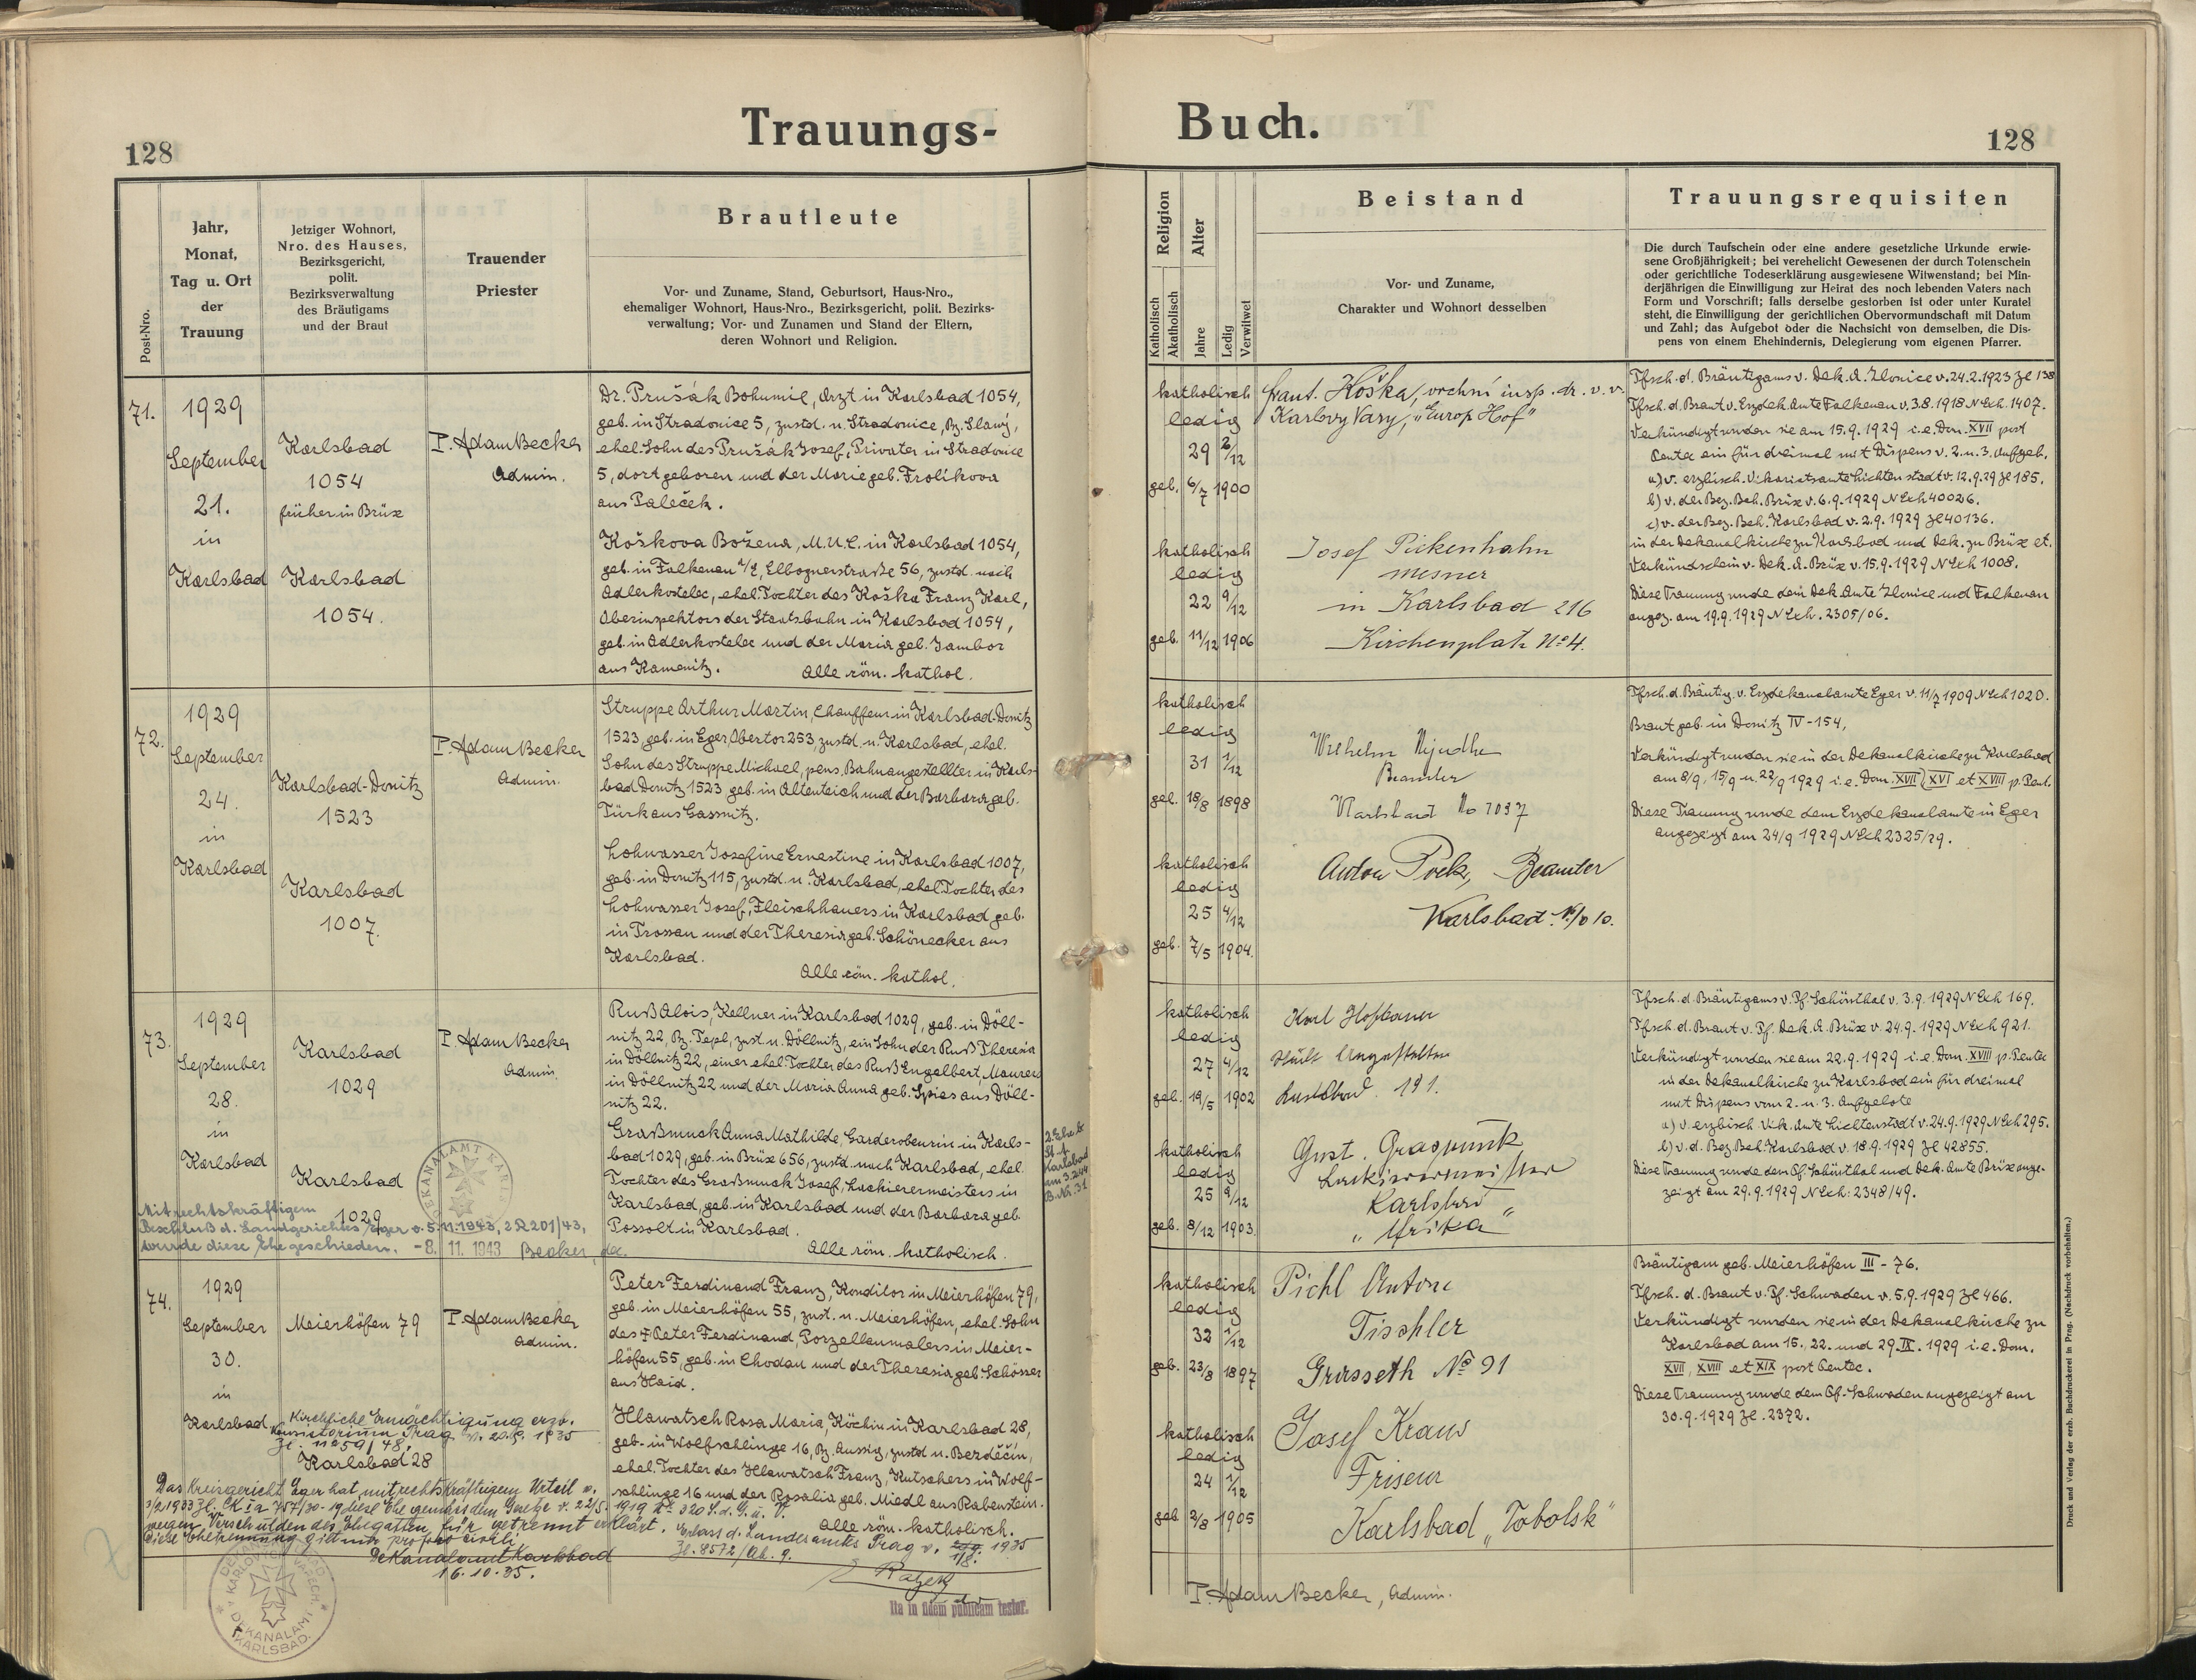 128
Trauungs-
Post-Nro.
Jahr,
Monat,
Tag u. Ort
der
Trauung
Jetziger Wohnort,
Nro. des Hauses,
Bezirksgericht,
polit.
Bezirksverwaltung
des Bräutigams
und der Braut
Trauender
Priester
Brautleute
Vor- und Zuname, Stand, Geburtsort, Haus-Nro.,
ehemaliger Wohnort, Haus-Nro., Bezirksgericht, polit. Bezirks-
verwaltung; Vor- und Zunamen und Stand der Eltern,
deren Wohnort und Religion.
71.
1929
September
21.
in
Karlsbad
Karlsbad
1054
früher in Brüx
Karlsbad
1054.
P. Adam Becker
Admin.
Dr. Prušák Bohumil, Arzt in Karlsbad 1054,
geb. in Stradonice 5, zustd. n. Stradonice, Bz. Slaný,
ehel. Sohn des Prušák Josef, Privater in Stradonice
5, dort geboren und der Marie geb. Frolíkova
aus Paleček.
Koškova Božena, M.U.C. in Karlsbad 1054,
geb. in Falkenau a/E, Elbognerstraße 56, zustd. nach
Adlerkostelec, ehel. Tochter des Koška Franz Karl,
Oberinspektors der Staatsbahn in Karlsbad 1054,
geb. in Adlerkostelec und der Maria geb. Jambor
aus Kamenitz. Alle röm. kathol.
72.
1929
September
24.
in
Karlsbad
Karlsbad-Donitz
1523
Karlsbad
1007.
P. Adam Becker
Admin.
Struppe Arthur Martin, Chauffeur in Karlsbad-Donitz
1523, geb. in Eger, Obertor 253, zustd. n. Karlsbad, ehel.
Sohn des Struppe Michael, pens. Bahnangestellter in Karls-
bad Donitz 1523 geb. in Altenteich und der Barbara geb.
Türk aus Gassnitz.
Lohwasser Josefine Ernestine in Karlsbad 1007,
geb. in Donitz 115, zustd. n. Karlsbad, ehel. Tochter des
Lohwasser Josef, Fleischhauers in Karlsbad geb.
in Trossau und der Theresia geb. Schönecker aus
Karlsbad.
Alle röm. kathol.
73.
1929
September
28.
in
Karlsbad
Karlsbad
1029
Karlsbad
1029
P. Adam Becker
Admin.
Ruß Alois, Kellner in Karlsbad 1029, geb. in Döll-
nitz 22, Bz. Tepl, zust. n. Döllnitz, ein Sohn der Ruß Theresia
in Döllnitz 22, einer ehel. Tochter des Ruß Engelbert, Maurers
in Döllnitz 22 und der Maria Anna geb. Spies aus Döll-
nitz 22.
Graßmuck Anna Mathilde, Garderobeurin in Karls-
bad 1029, geb. in Brüx 656, zustd. nach Karlsbad, ehel.
Tochter des Graßmuck Josef, Lackierermeisters in
Karlsbad, geb. in Karlsbad und der Barbara geb.
Possolt in Karlsbad.
Alle röm. katholisch.
Karlsbad
am 3.2.44
B. Nr. 31
Mit rechtskräftigem
Beschluß d. Landgerichtes Eger v. 5.11.1943, 2 R 201/43,
wurde diese Ehe geschieden. -8. 11. 1943 Becker, de.
74.
1929
September
30.
in
Karlsbad
Meierhöfen 79
Karlsbad 28
P. Adam Becker
Admin.
Peter Ferdinand Franz, Konditor in Meierhöfen 79,
geb. in Meierhöfen 55, zust. n. Meierhöfen, ehel. Sohn
des † Peter Ferdinand, Porzellanmalers in Meier-
höfen 55, geb. in Chodau und der Theresia geb. Schösser
aus Haid.
Hlawatsch Rosa Maria, Köchin in Karlsbad 28,
geb. in Wolfschlinge 16, Bz. Aussig, zustd. n. Bezděčín,
ehel. Tochter des Hlawatsch Franz, Kutschers in Wolf-
schlinge 16 und der Rosalia geb. Miedl aus Rabenstein.
Alle röm. katholisch.
Kirchliche Ermächtigung erzb.
Konsistorium Prag v. 20.9. 1935
Das Kreisgericht Eger hat mit rechtskräftigem Urteil v.
3/2 1933 Zl. CK Ia 757/30-19 diese Ehe gemäß dem Gesetze v. 22/5. 1919 No 320 S.d.G.u.V.
wegen Verschulden des Ehegatten für getrennt erklärt. Erlass d. Landesamts Prag v. 1/8. 1935
Zl. 8572/Ab. 9.
Diese Ehetrennung gilt nur pro foro civili.
Dekanalamt Karlsbad
16.10.35.
Ita in fidem publicam testor.
DEKANALAMT
KARLSBAD.
Buch.
128
Religion
Katholisch
Akatholisch
Alter
Jahre
Ledig
Verwitwet
Beistand
Vor- und Zuname,
Charakter und Wohnort desselben
Trauungsrequisiten
Die durch Taufschein oder eine andere gesetzliche Urkunde erwie-
sene Großjährigkeit; bei verehelicht Gewesenen der durch Totenschein
oder gerichtliche Todeserklärung ausgewiesene Witwenstand; bei Min-
derjährigen die Einwilligung zur Heirat des noch lebenden Vaters nach
Form und Vorschrift; falls derselbe gestorben ist oder unter Kuratel
steht, die Einwilligung der gerichtlichen Obervormundschaft mit Datum
und Zahl; das Aufgebot oder die Nachsicht von demselben, die Dis-
pens von einem Ehehindernis, Delegierung vom eigenen Pfarrer.
katholisch
ledig
29 2/12
geb. 6/7 1900
Frant. Koška, vrchní insp. dr. v. v.
Karlovy Vary, "Europ Hof"
katholisch
ledig
22 9/12
geb. 11/12 1906
Josef Pickenhahn
Mesner
in Karlsbad 216
Kirchenplatz No 4.
Tfsch. d. Bräutigams v. Dek. A. Zlonice v. 24.2.1923 Zl 138
Tfsch. d. Braut v. Erzdek. Amte Falkenau v. 3.8.1918 N Exh. 1407.
Verkündigt wurden sie am 15.9.1929 i.e. Dom. XVII post
Pentec ein für dreimal mit Dispens v. 2. u. 3. Aufgeb.
a) v. erzbisch. Vikariatsamte Lichtenstadt v. 12.9.29 Zl 185.
b) v. der Bez. Beh. Brüx v. 6.9.1929 N Exh 40026.
c) v. der Bez. Beh. Karlsbad v. 2.9.1929 Zl 40136.
in der Dekanalkirche zu Karlsbad und Dek. zu Brüx et.
Verkündschein v. Dek. A. Brüx v. 15.9.1929 N Exh 1008.
Diese Trauung wurde dem Dek. Amte Zlonice und Falkenau
angez. am 19.9.1929 N Exh. 2305/06.
katholisch
ledig
31 1/12
geb. 18/8 1898
Wilhelm
Beamter
Karlsbad No 1037
katholisch
ledig
25 4/12
geb. 7/5 1904.
Anton Pock, Beamter
Karlsbad. No 10.
Tfsch. d. Bräutig. v. Erzdekanalamte Eger v. 11/7 1909 N Exh 1020.
Braut geb. in Donitz IV-154,
Verkündigt wurden sie in der Dekanalkirche zu Karlsbad
am 8/9, 15/9 u. 22/9 1929 i.e. Dom. XVII, XVI et XVIII p. Pent.
Diese Trauung wurde dem Erzdekanalamte in Eger
angezeigt am 24/9 1929 N Exh 2325/29.
katholisch
ledig
27 4/12
geb. 19/5 1902
Karl Hofbauer
Angestellter
Karlsbad. 191.
katholisch
ledig
25 9/12
geb. 8/12 1903
Gust. Grasmuck
Lackierermeister
Karlsbad
"Afrika"
Tfsch. d. Bräutigams v. Pf. Schönthal v. 3.9.1929 N Exh 169.
Tfsch. d. Braut v. Pf. Dek. A. Brüx v. 24.9.1929 N Exh 921.
Verkündigt wurden sie am 22.9.1929 i.e. Dom. XVIII p. Pentec
in der Dekanalkirche zu Karlsbad ein für dreimal
mit Dispens vom 2. u. 3. Aufgebote
a) v. erzbisch Vik. Amte Lichtenstadt v. 24.9.1929 N Exh 295.
b) v. d. Bez. Beh. Karlsbad v. 18.9.1929 Zl 42855.
Diese Trauung wurde dem Pf. Schönthal und Dek. Amte Brüx ange-
zeigt am 29.9.1929 N Exh: 2348/49.
katholisch
ledig
32 1/12
geb. 23/8 1897
Pichl Anton
Tischler
Grasseth No 91
katholisch
ledig
24 1/12
geb 2/8 1905
Josef Kraus
Friseur
Karlsbad "Tobolsk"
Bräutigam geb. Meierhöfen III-76.
Tfsch. d. Braut v. Pf. Schwaden v. 5.9.1929 Zl 466.
Verkündigt wurden sie in der Dekanalkirche zu
Karlsbad am 15. 22. und 29. IX. 1929 i.e. Dom.
XVII, XVIII et XIX post Pentec.
Diese Trauung wurde dem Pf. Schwaden angezeigt am
30.9.1929 Zl. 2372.
P. Adam Becker, Admin.
Druck und Verlag der erzb. Buchdruckerei in Prag. (Nachdruck vorbehalten.)